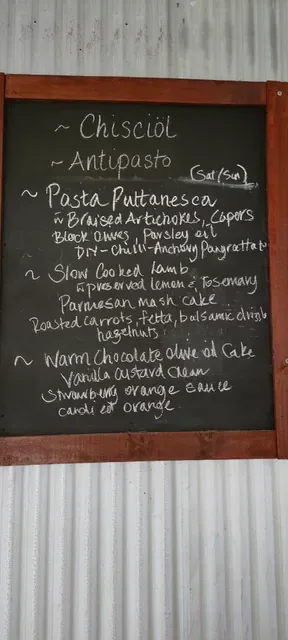 ~ Chisciöl
~ Antipasto
(Sat/Sun)
~ Pasta Puttanesca
w Braised Artichokes, Capers
Black Olives, Parsley oil
Dry-Chilli-Anchovy Pangrattato
~ Slow Cooked Lamb
w preserved lemon & rosemary
Parmesan mash cake
Roasted carrots, fetta, balsamic drizzle
hazelnuts
~ Warm Chocolate olive oil Cake
Vanilla Custard Cream
Strawberry orange sauce
candied orange